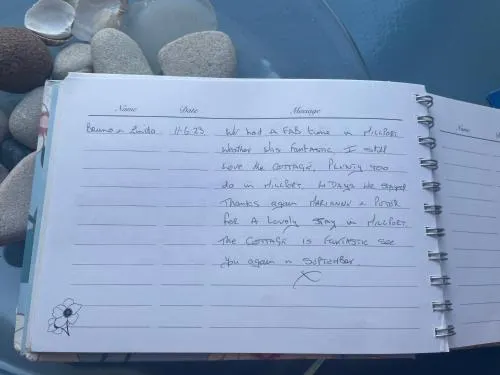 Name Date Message
Linda 11.6.23 We had A FAB time in MILLPORT.
Weather was fantastic I still
Love the COTTAGE, PLENTY TOO
do in MILLPORT. 4 DAYS we stayed
Thanks again MARIANNE n PETER
for A Lovely stay in MILLPORT.
The COTTAGE is FANTASTIC see
You again n SEPTEMBER.
X
Name